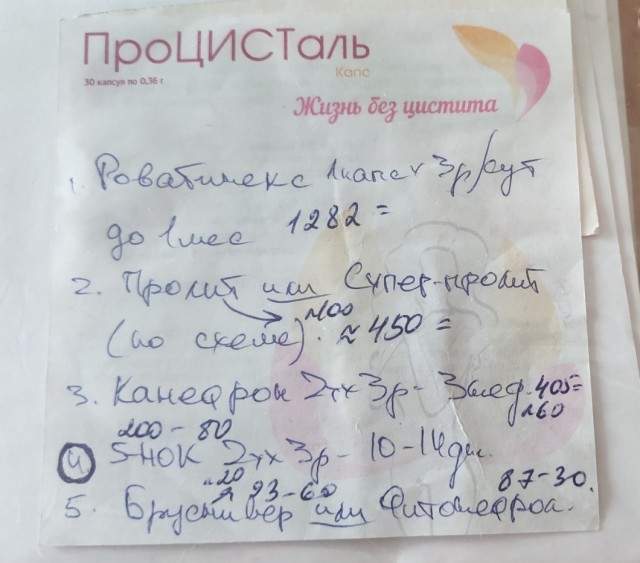 ПроЦИСТаль
Капс
30 капсул по 0,36 г
Жизнь без цистита
1. Роватинекс 1капс x 3р/сут
до 1 мес 1282 =
2. Пролит или Супер-пролит
(по схеме). ≈400 ≈ 450 =
3. Канефрон 2тх3р - 3нед. 405=
200 - 80 №60
4 5-НОК 2тх3р - 10-14дн.
№20 93-60 87-30.
5. Бруснивер или Фитонефрол.